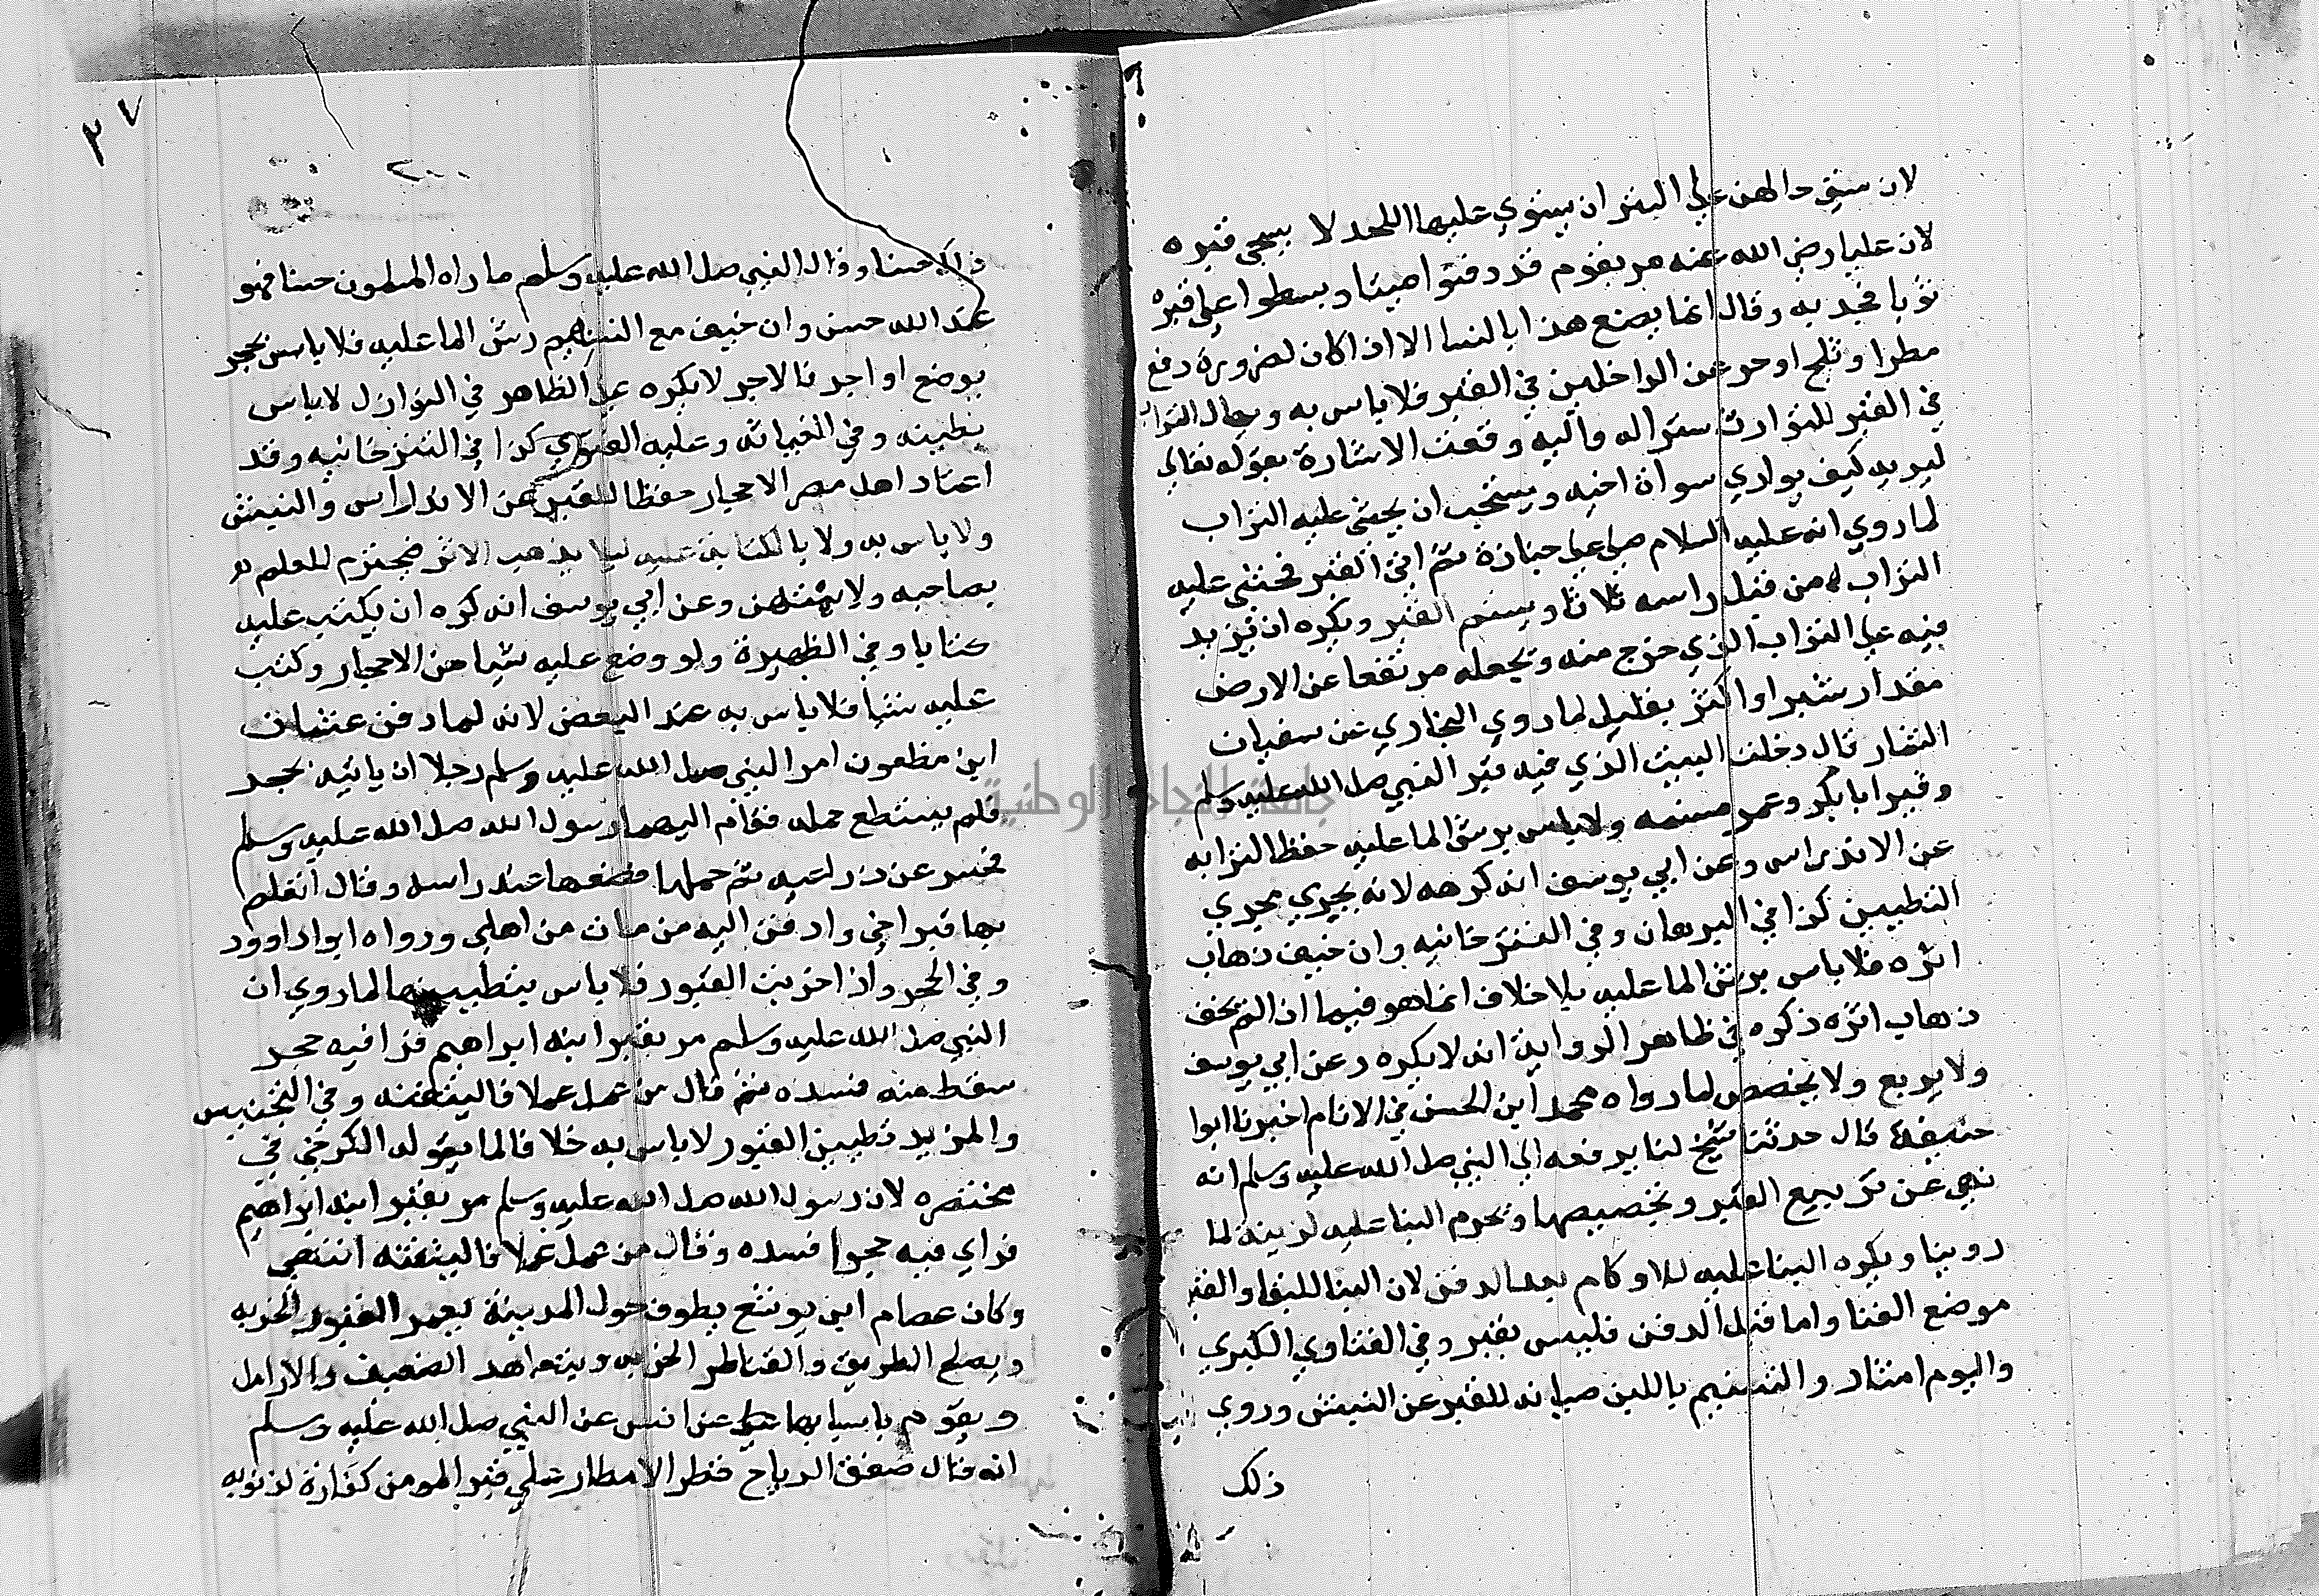 لان سبتي حالهن علي الستر ان يستوي عليها اللحد لا يسجي قبره
لان عليا رضي الله عنه مر بقوم قد دفنوا ميتا وبسطوا علي قبره
ثوبا فجذبه وقال انما يصنع هذا بالنسا الا اذا كان لضرورة دفع
مطرا وثلج او حر عن الداخلين في القبر فلا باس به ويهال التراب
في القبر للتوارث ستراله واليه وقعت الاشارة بقوله تعالي
ليريه كيف يواري سواة اخيه ويستحب ان يحثي عليه التراب
لما روي انه عليه السلام صلي علي جنازة ثم اتي القبر فحثي عليه
التراب من قبل راسه ثلاثا ويسنم القبر ويكره ان تزيد
فيه علي التراب الذي خرج منه ويجعله مرتفعا عن الارض
مقدار شبر او اكثر بقليل لما روي البخاري عن سفيان
التمار قال دخلت البيت الذي فيه قبر النبي صلي الله عليه وسلم
وقبر ابا بكر وعمر مسنمه ولا باس برش الما عليه حفظا لترابه
عن الاندراس وعن ابي يوسف انه كرهه لانه يجري مجري
التطيين كذا في البرهان وفي التتر خانيه وان خيف ذهاب
اثره فلا باس برش الما عليه بلا خلاف انما هو فيما اذا لم يخف
ذهاب اثره ذكره في ظاهر الرواية انه لا يكره وعن ابي يوسف
ولا يربع ولا يجصص لما رواه محمد ابن الحسن في الاثام اخبرنا ابوا
حنيفة قال حدثنا شيخ لنا يرفعه الي النبي صلي الله عليه وسلم انه
نهي عن تربيع القبر وتجصيصها ويحرم البنا عليه لزينة لما
روينا ويكره البنا عليه للاوكام بعد الدفن لان البنا للبقا والقبر
موضع الفنا واما قبل الدفن فليس بقبر وفي الفتاوي الكبري
واليوم اعتاد والتسنيم باللبن صيانه للقبر عن النبش وروي
ذلك
٢٧
٢٠٠
ذلك حسنا وقال النبي صلي الله عليه وسلم ما راه المسلمون حسنا فهو
عند الله حسن وان خيف مع التسنيم رش الما عليه فلا باس بحجر
يوضع او اجر فالاجر لا يكره علي الظاهر في النوازل لا باس
بطينه وفي الغياثه وعليه الفتوي كذا في التتر خانيه وقد
اعتاد اهل مصر الاحجار حفظا للقبر عن الاندراس والنبش
ولا باس به ولا بالكتابة عليه ليلا يذهب الاثر فيحترم للعلم
بصاحبه ولا يمتهن وعن ابي يوسف انه كره ان يكتب عليه
كتابا وفي الظهيرة ولو وضع عليه شيا من الاحجار وكتب
عليه شيا فلا باس به عند البعض لانه لما دفن عثمان
ابن مظعون امر النبي صلي الله عليه وسلم رجلا ان ياتيه بحجر
فلم يستطع حمله فقام اليهما رسول الله صلي الله عليه وسلم
فحسر عن ذراعيه ثم حملها فضعها عند راسه وقال اتعلم
بها قبر اخي وادفن اليه من مات من اهلي ورواه ابوا داوود
وفي الحجر واذا خربت القبور فلا باس بتطيينها لما روي ان
النبي صلي الله عليه وسلم مر بقبر ابنه ابراهيم فرا فيه حجر
سقط منه فسده ثم قال من عمل عملا فاليتقنه وفي التجنيس
والمزيد تطيين القبور لا باس به خلا فا لما يقوله الكرخي في
مختصره لان رسول الله صلي الله عليه وسلم مر بقبر ابنه ابراهيم
فراي فيه حجرا فسده وقال من عمل عملا فاليتقنه انتهي
وكان عصام ابن يوسع يطوف حول المدينة يعمر القبور الخربه
ويصلح الطريق والقناطر الخربه ويتعاهد الضعيف والارامل
ويقوم باسبابها عن انس عن النبي صلي الله عليه وسلم
انه قال صفق الرياح قطر الامطار علي قبر المومن كفارة لذنوبه
جامعة النجاح الوطنية